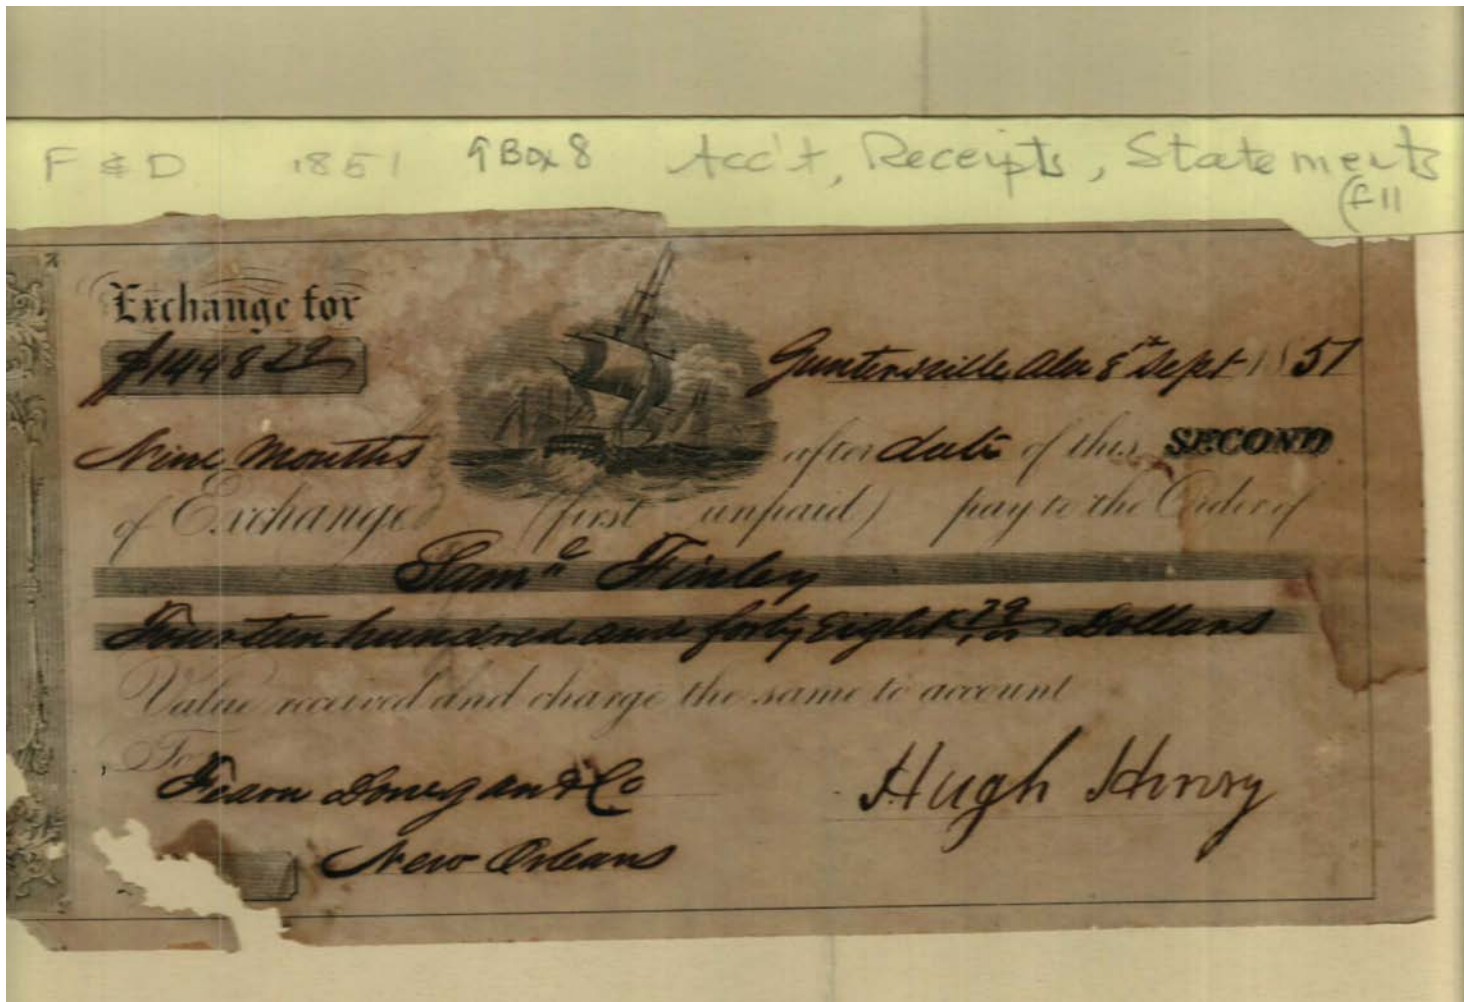 F & D 1851 9 Box 8 Acc't, Receipts, Statements
(f 11
Exchange for
$1448 29
Guntersville Ala 8th Sept 1851
Nine Months after date of this SECOND
of Exchange (first unpaid) pay to the Order of
Saml Finley
Fourteen hundred and forty Eight & 29/100 Dollars
Value received and charge the same to account
To
Fearn Donegan & Co
New Orleans
Hugh Henry